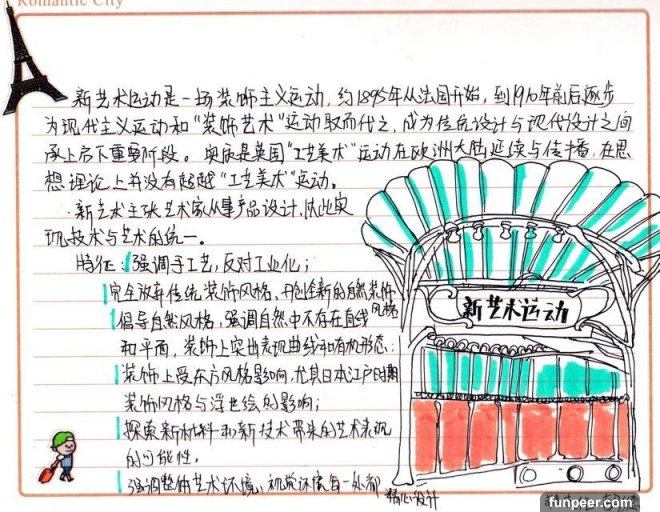 Romantic City
新艺术运动是一场装饰主义运动，约1895年从法国开始，到1910年前后逐步
为现代主义运动和“装饰艺术”运动取而代之，成为传统设计与现代设计之间
承上启下重要阶段。实质是英国“工艺美术”运动在欧洲大陆延续与传播，在思
想理论上并没有超越“工艺美术”运动。
·新艺术主张艺术家从事产品设计，以此实
现技术与艺术的统一。
特征：强调手工艺，反对工业化；
完全放弃传统装饰风格，开创全新的自然装饰
风格
倡导自然风格，强调自然中不存在直线
和平面，装饰上突出表现曲线和有机形态；
装饰上受东方风格影响，尤其日本江户时期
装饰风格与浮世绘的影响；
探索新材料和新技术带来的艺术表现
的可能性。
强调整体艺术环境，视觉环境每一处都
精心设计
新艺术运动
funpeer.com